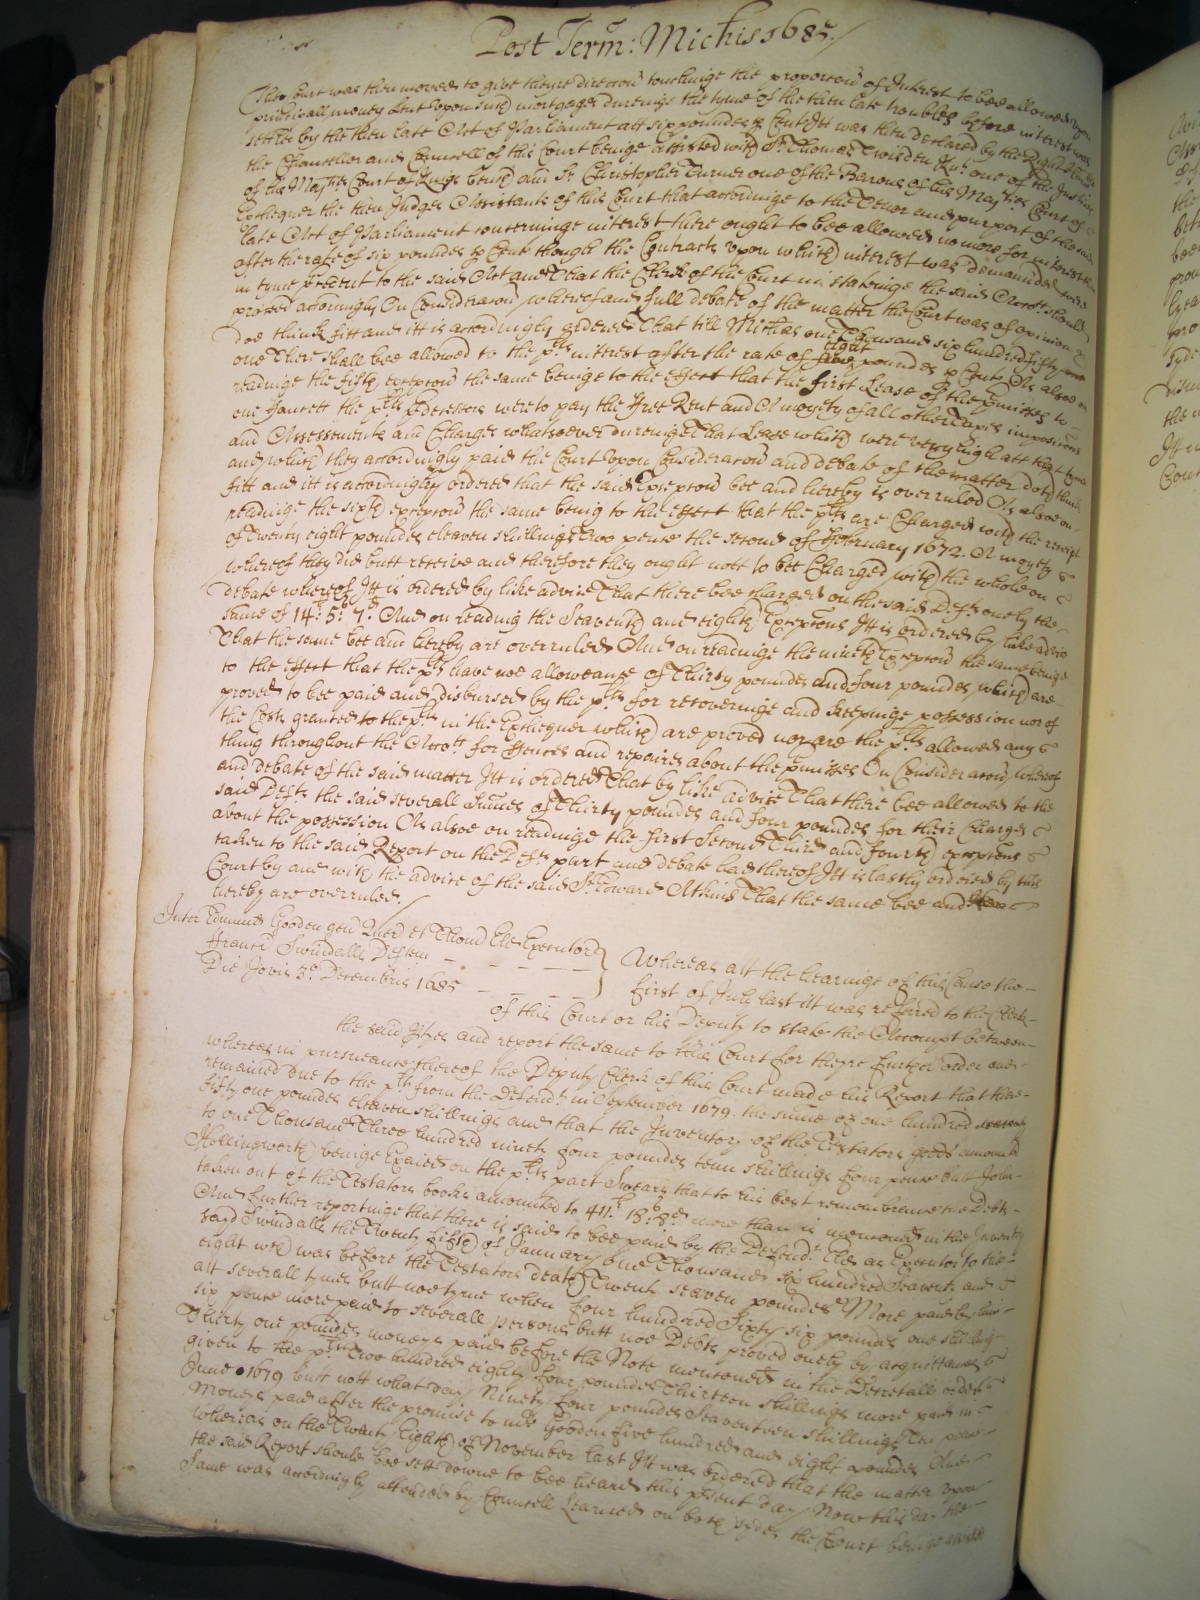 Post Term: Michis 1685
The Court was then moved to give theyre direccon touchinge the proporcon of Interest to bee allowed upon
principall money Lent upon such mortgages dureinge the tyme of the then late troubles before interest was
settled by the then late Act of Parliament att six poundes p Cent Itt was then declared by the Right
the Chancellor and Councell of this Court beinge assisted with Sr. Thomas Twisden Knt. one of the Justices
of his Maties Court of Kings bench and Sr Christopher Turnor one of the Barons of his Maties Court of
Exchequer the then Judges Assistants of this Court that accordinge to the Tenor and purport of the said
late Act of Parliament concerninge interest there ought to bee allowed no more for interest then
after the rate of six poundes p Cent though the Contracts upon which interest was demanded were
in tyme precedent to the said Act and That the Clerk of the Court in stateinge the said Accott should
proceed accordingly On Consideracon whereof and full debate of the matter the Court was of opinion &
doe think fitt and itt is accordingly ordered That till Michas one Thousand six hundred fifty
one There shall bee allowed to the plts interest after the rate of eight poundes p Cent As alsoe on
readinge the fifth excepcon the same beinge to the effect that the first Lease of the premisses to
one Fawcett the plts predecessors were to pay the Free Rent and A moyety of all other Taxes imposicons
and Assessements and Charges whatsoever dureinge That Lease which were very high att that tyme
and which they accordingly paid the Court upon Consideracon and debate of the matter doth think
fitt and itt is accordingly ordered that the said Excepcon bee and hereby is overruled As alsoe on
readinge the sixth excepcon the same being to the effect that the plts are Charged with the receipt
of Twenty eight poundes eleaven shillings Two pence the second of February 1672. A moyety
whereof they did butt receive and therefore they ought nott to bee Charged with the whole on
debate whereof Itt is ordered by like advice That there bee charged on the said Defts onely the
same of 14l: 5s: 7d. And on reading the Seaventh and eighth Excepcons Itt is ordered by like advice
That the same bee and hereby are overruled And on readinge the nineth Excepcon the same beinge
to the effect that the plts have noe allowance of Thirty poundes and four poundes which are
proved to bee paid and disbursed by the plts for recoveringe and keepinge possession nor of
the Costs granted to the plts in the Exchequer which are proved nor are the plts allowed any
thing throughout the Accott for ffences and repaires about the premisses On Consideracon whereof
and debate of the said matter Itt is ordered That by like advice That there bee allowed to the
said Defts the said severall Summes of Thirty poundes and four poundes for their Charges
about the possession As alsoe on readinge the first Second Third and fourth excepcons
taken to the said Report on the Defts part and debate had thereof Itt is lastly ordered by this
Court by and with the advice of the said Sr. Edward Atkins That the same bee and
hereby are overruled.
Inter Edmund Gooden gen Quer et Thom Executor
Franc Swindalls Deften
Die Jovis 3o. Decembris 1685
Whereas att the hearinge of this Cause the
first of July last itt was referred to the Clerk
of this Court or his Deputy to state the Accompt between
the said ptyes and report the same to this Court for theyre further order and
whereas in pursueance thereof the Deputy Clerk of this Court made his Report that there
remained due to the plt from the Defendt. in September 1679. the sume of one hundred
fifty one poundes eleaven shillings and that the Inventory of the Testators goods amounted
to one Thousand Three hundred ninety four poundes tenn shillings four pence butt John
Hollingworth beinge Examined on the plts part Swears that to his best remembrance the Debts
taken out of the Testators books amounted to 411l. 18s. 8d. more than is mentioned in the Inventory
And further reportinge that there is said to bee paid by the Defendt. as Executor to the
said Swindalls the Twenty fifth of January One Thousand six hundred Seaventy and
eight wch was before the Testators death Twenty seaven poundes More paid by him
att severall tymes butt noe tyme when four hundred Sixty six poundes one shilling
six pence more paid to severall persons butt noe Debts proved onely by acquittances
Thirty one poundes moneys paid before the Note mentioned in the Decretall order
given to the plt Two hundred eighty four poundes Thirteen shillings more paid in
June 1679 butt nott what day Ninety four poundes Seaventeen shillings Ten pence
Moneys paid after the promise to Gooden five hundred and eight poundes And
whereas on the Twenty Eighth of November last Itt was ordered that the matter upon
the said Report should bee sett downe to bee heard this present day Now this day the
Same was accordingly attended by Councell Learned on both sydes the Court beinge assisted